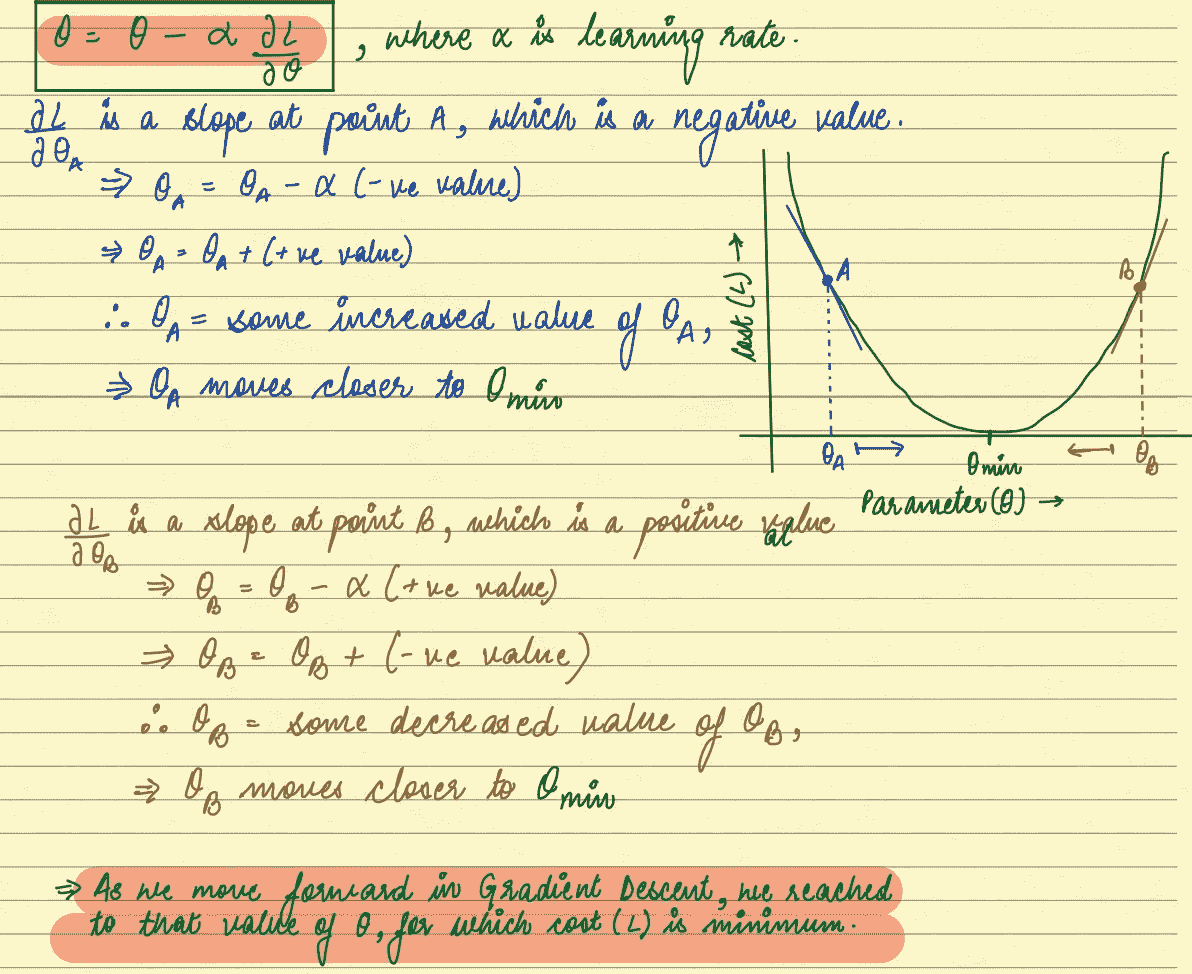 θ = θ − α ∂L/∂θ , where α is learning rate.
∂L/∂θ_A is a slope at point A, which is a negative value.
⇒ θ_A = θ_A − α (-ve value)
⇒ θ_A = θ_A + (+ve value)
∴ θ_A = some increased value of θ_A,
⇒ θ_A moves closer to θmin
cost (L) →
A
B
θ_A ↦
θmin
← θ_B
Parameter(θ) →
∂L/∂θ_B is a slope at point B, which is a positive value
al
⇒ θ_B = θ_B − α (+ve value)
⇒ θ_B = θ_B + (-ve value)
∴ θ_B = some decreased value of θ_B,
⇒ θ_B moves closer to θmin
⇒ As we move forward in Gradient Descent, we reached
to that value of θ, for which cost (L) is minimum.